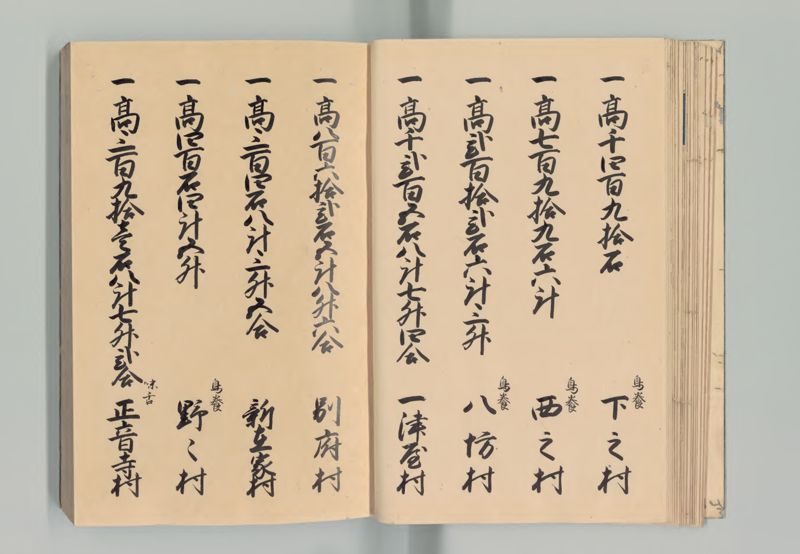 一高千四百九拾石 鳥養 下之村
一高七百九拾九石六斗 鳥養 西之村
一高弐百拾弐石六斗三升 鳥養 八坊村
一高千弐百五石八斗七升四合 一津屋村
一高八百六拾弐石五斗八升六合 別府村
一高三百四石八斗三升五合 新在家村
一高四百石四斗五升 鳥養 野々村
一高三百九拾壱石八斗七升弐合 味舌 正音寺村